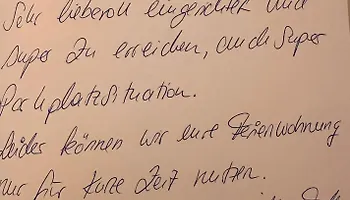 Sehr liebevoll eingerichtet und
super zu erreichen, auch super
Parkplatzsituation.
Leider können wir eure Ferienwohnung
nur für kurze Zeit nutzen.